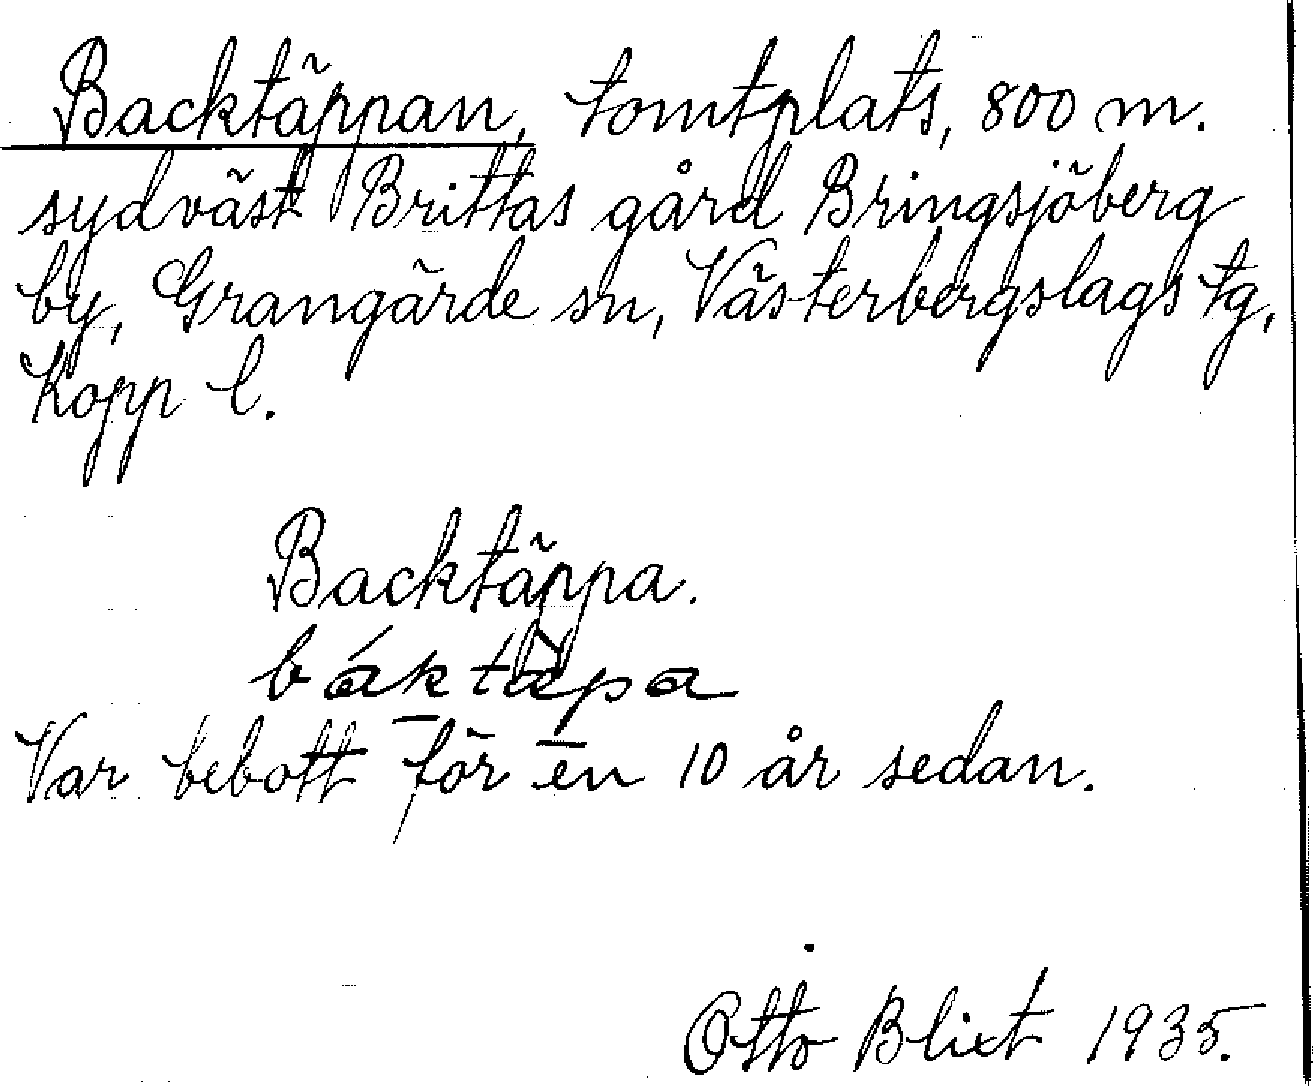 Backtäppan, tomtplats, 800 m.
sydväst Brittas gård Bringsjöberg
by, Grangärde sn, Västerbergslags tg,
Kopp l.
Backtäppa.
báktæ̀pa
Var bebott för en 10 år sedan.
Otto Blixt 1935.